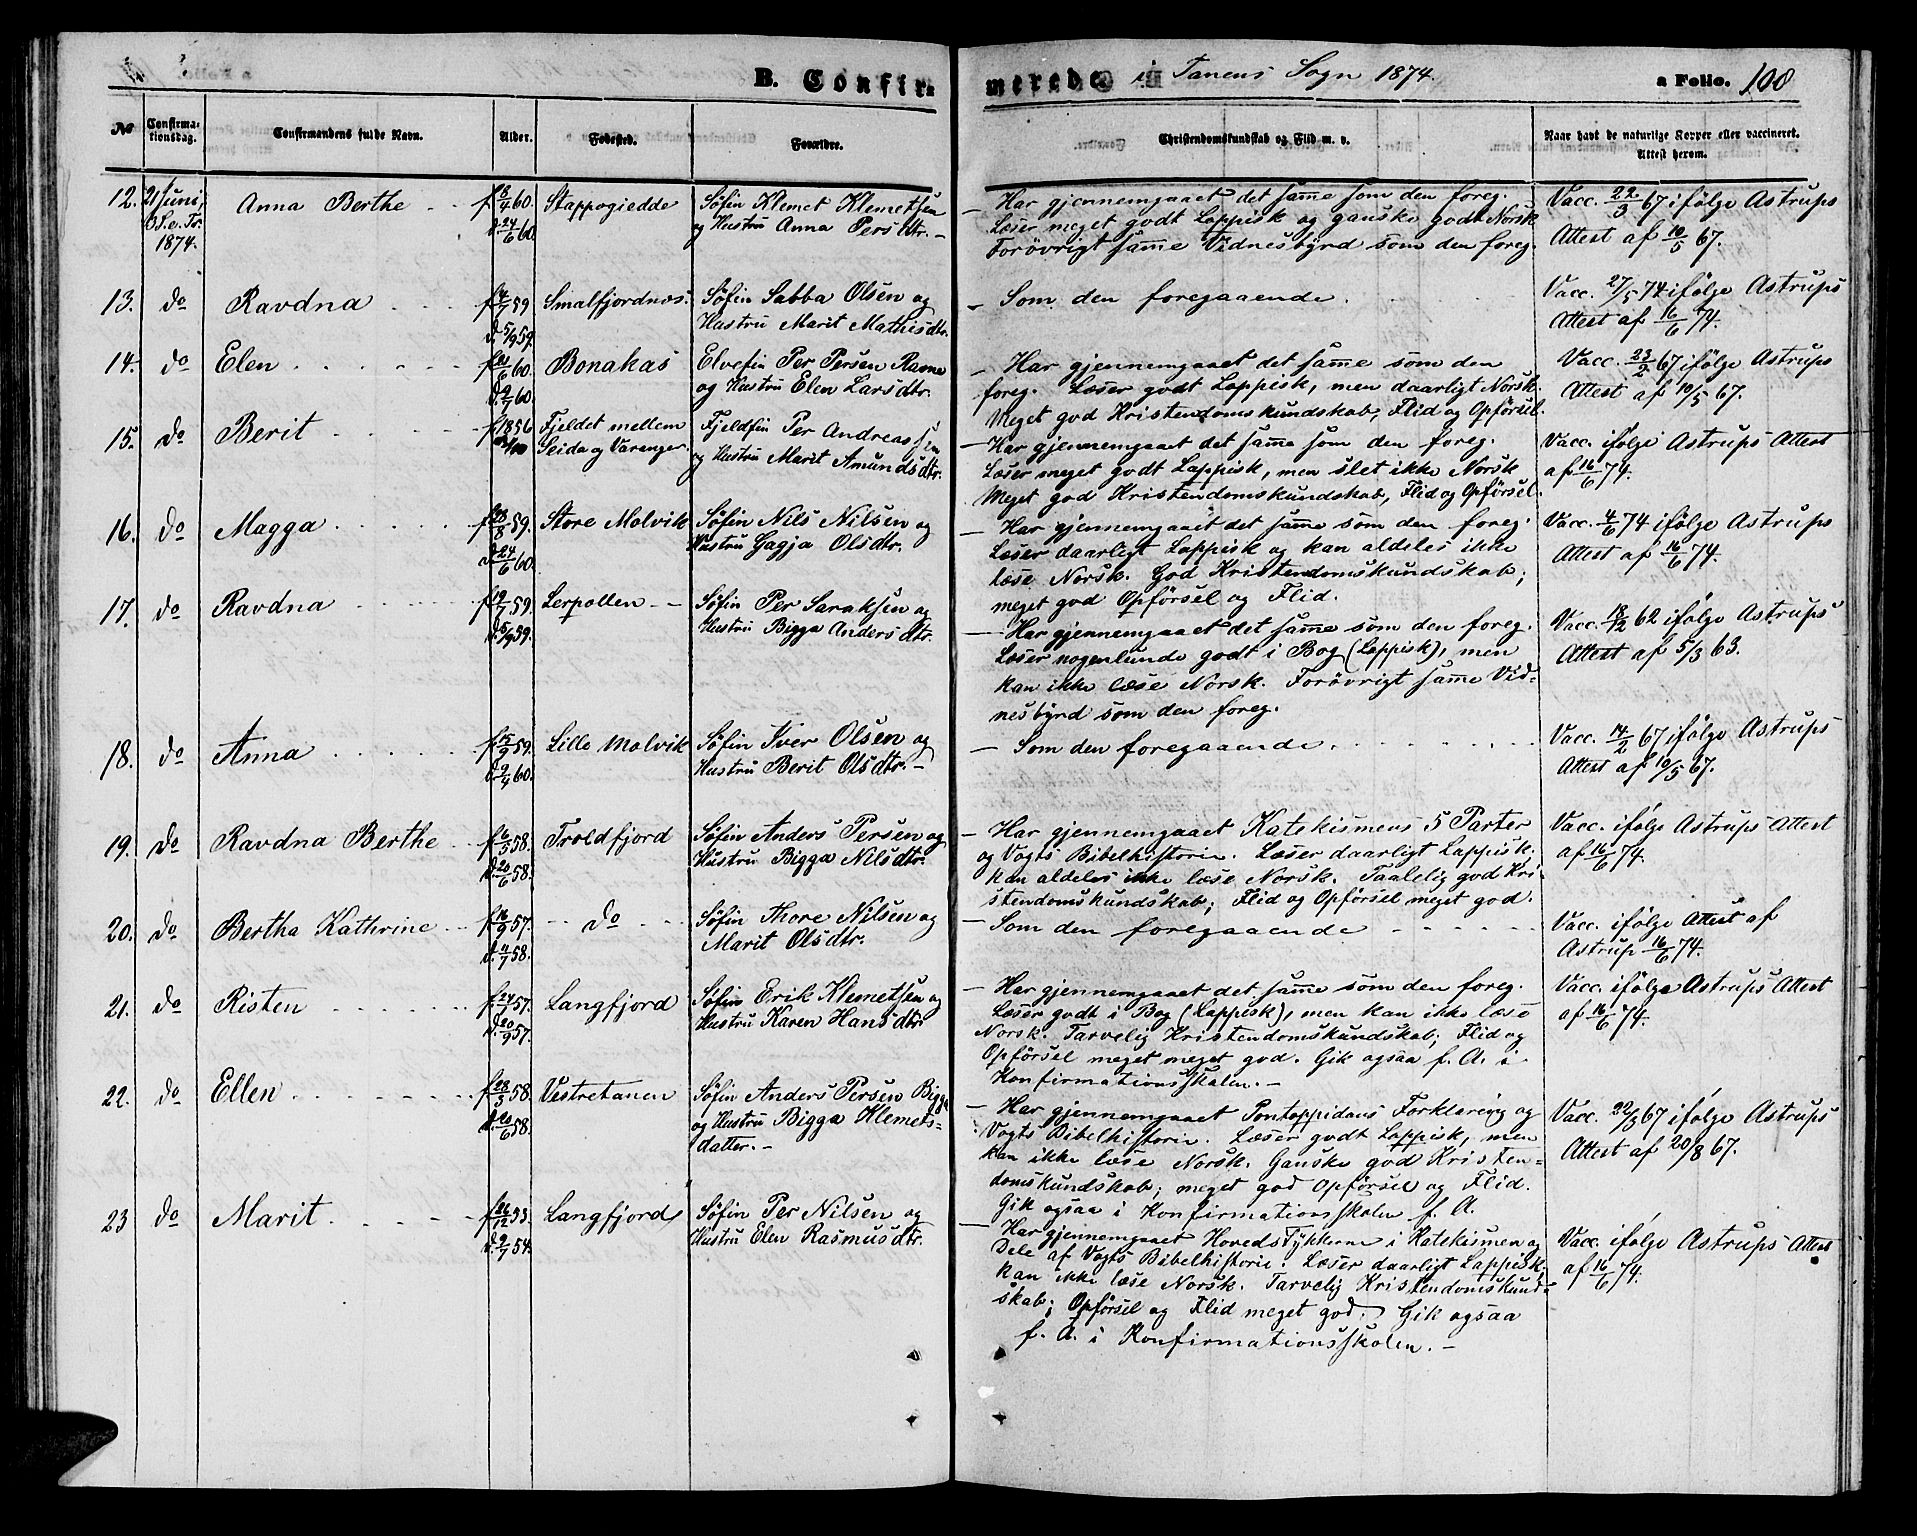 B. Confirmerede i Tanens Sogn 1874. a Folio. 108
No Confirmationsdag. Confirmandens fulde Navn. Alder. Fødested. Forældre. Christendomskundskab og Flid m. v. Naar havt de naturlige Kopper eller vaccineret. Attest herom.
12. 21 Juni, 3 S. e. Tr. 1874. Anna Berthe f. 8/4 60. d. 24/6 60. Stappogiedde
Søfin Klemet Klemetsen
og Hustru Anna Persdtr. –
– Har gjennemgaaet det samme som den foreg.
Læser meget godt Lappisk og ganske godt Norsk
Forøvrigt samme Vidnesbyrd som den foreg.
Vacc. 22/3 67 ifølge Astrups
Attest af 10/5 67.
13. do Ravdna f. 4/7 59 d. 5/9 59. Smalfjordnæs.
Søfin Sabba Olsen og
Hustru Marit Mathisdtr.
– Som den foregaaende.
Vacc. 27/5 74 ifølge Astrups
Attest af 16/6 74.
14. do Elen 60. d. 2/7 60. Bonakas
Elvefin Per Persen
og Hustru Elen Larsdtr.
– Har gjennemgaaet det samme som den
foreg. Læser godt Lappisk, men daarligt Norsk.
Meget god Kristendomskundskab, Flid og Opførsel.
Vacc. 23/2 67 ifølge Astrups
Attest af 10/5 67.
15. do Berit f. 1856 Fjeldet mellem
Seida og Varanger.
Fjeldfin Per Andreassen
og Hustru Marit Amundsdtr.
– Har gjennemgaaet det samme som den foreg.
Læser meget godt Lappisk, men slet ikke Norsk
Meget god Kristendomskundskab, Flid og Opførsel.
Vacc. ifølge Astrups Attest
af 16/6 74.
16. do Magga 8 59. d. 24/6 60. Store Molvik
Søfin Nils Nilsen og
Hustru Gagja Olsdtr.
– Har gjennemgaaet det samme som den foreg.
Læser daarligt Lappisk og kan aldeles ikke
læse Norsk. God Kristendomskundskab;
meget god Opførsel og Flid.
Vacc. 4/6 74 ifølge Astrups
Attest af 16/6 74.
17. do Ravdna f. 19/7 59. d. 5/9 59. Lerpollen –
Søfin Per Saraksen og
Hustru Bigga Andersdtr.
– Har gjennemgaaet det samme som den foreg.
Læser nogenlunde godt i Bog (Lappisk), men
kan ikke læse Norsk. Forøvrigt samme Vid-
nesbyrd som den foreg.
Vacc. 18/12 62 ifølge Astrups
Attest af 5/3 63.
18. do Anna f. 15/9 59. d. 9/4 60. Lille Molvik
Søfin Iver Olsen og
Hustru Berit Olsdtr. –
– Som den foregaaende.
Vacc. 14/2 67 ifølge Astrups
Attest af 10/5 67.
19. do Ravdna Berthe f. 6/5 58. d. 20/6 58. Troldfjord
Søfin Anders Persen og
Hustru Bigga Nilsdtr.
– Har gjennemgaaet Katekismens 5 Parter
og Vogts Bibelhistorie. Læser daarligt Lappisk,
kan aldeles ikke læse Norsk. Taalelig god Kri-
stendomskundskab; Flid og Opførsel meget god.
Vacc. ifølge Astrups Attest
af 16/6 74.
20. do Bertha Kathrine f. 16/9 57. d. 11/7 58. – do –
Søfin Thore Nilsen og
Marit Olsdtr.
– Som den foregaaende
Vacc. ifølge Attest af
Astrup 16/6 74.
21. do Risten f. 24/7 57. d. 20/9 57. Langfjord
Søfin Erik Klemetsen og
Hustru Karen Hansdtr
– Har gjennemgaaet det samme som den foreg.
Læser godt i Bog (Lappisk), men kan ikke læse
Norsk. Tarvelig Kristendomskundskab; Flid og
Opførsel meget meget god. Gik ogsaa f. A. i
Konfirmationsskolen. –
Vacc. ifølge Astrups Attest
af 16/6 74.
22. do Ellen f. 28/3 58. d. 20/6 58. Vestretanen
Søfin Anders Persen Bigga
og Hustru Bigga Klemets-
datter. –
– Har gjennemgaaet Pontoppidans Forklaring og
Vogts Bibelhistorie. Læser godt Lappisk, men
kan ikke læse Norsk. Ganske god Kristen-
domskundskab; meget god Opførsel og Flid.
Gik ogsaa i Konfirmationsskolen f. A.
Vacc. 22/3 67 ifølge Astrups
Attest af 20/8 67.
23 do Marit f. 26/12 53. d. 9/7 54. Langfjord
Søfin Per Nilsen og
Hustru Elen Rasmusdtr.
– Har gjennemgaaet Hovedstykkerne i Katekismen og
Dele af Vogts Bibelhistorie. Læser daarligt Lappisk,
kan ikke læse Norsk. Tarvelig Kristendomskund-
skab; Opførsel og Flid meget god. Gik ogsaa
f. A. i Konfirmationsskolen. –
Vacc. ifølge Astrups Attest
af 16/6 74.